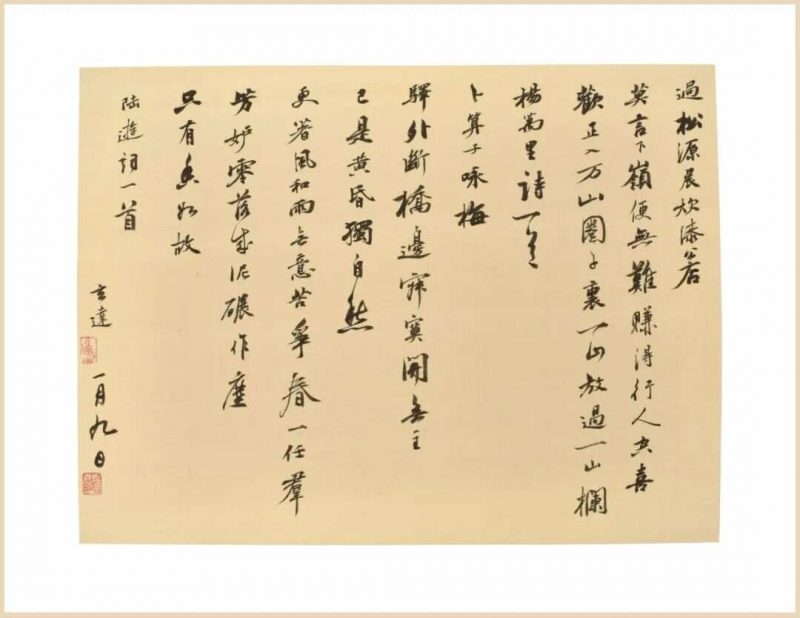 過松源晨炊漆公店
莫言下嶺便無難賺得行人空喜
歡正入万山圈子裏一山放過一山欄
楊萬里詩一首
卜算子咏梅
驛外斷橋邊寂寞開無主
已是黄昏獨自愁
更著風和雨無意苦爭春一任羣
芳妒零落成泥碾作塵
只有香如故
陸遊詞一首
玄達
一月九日